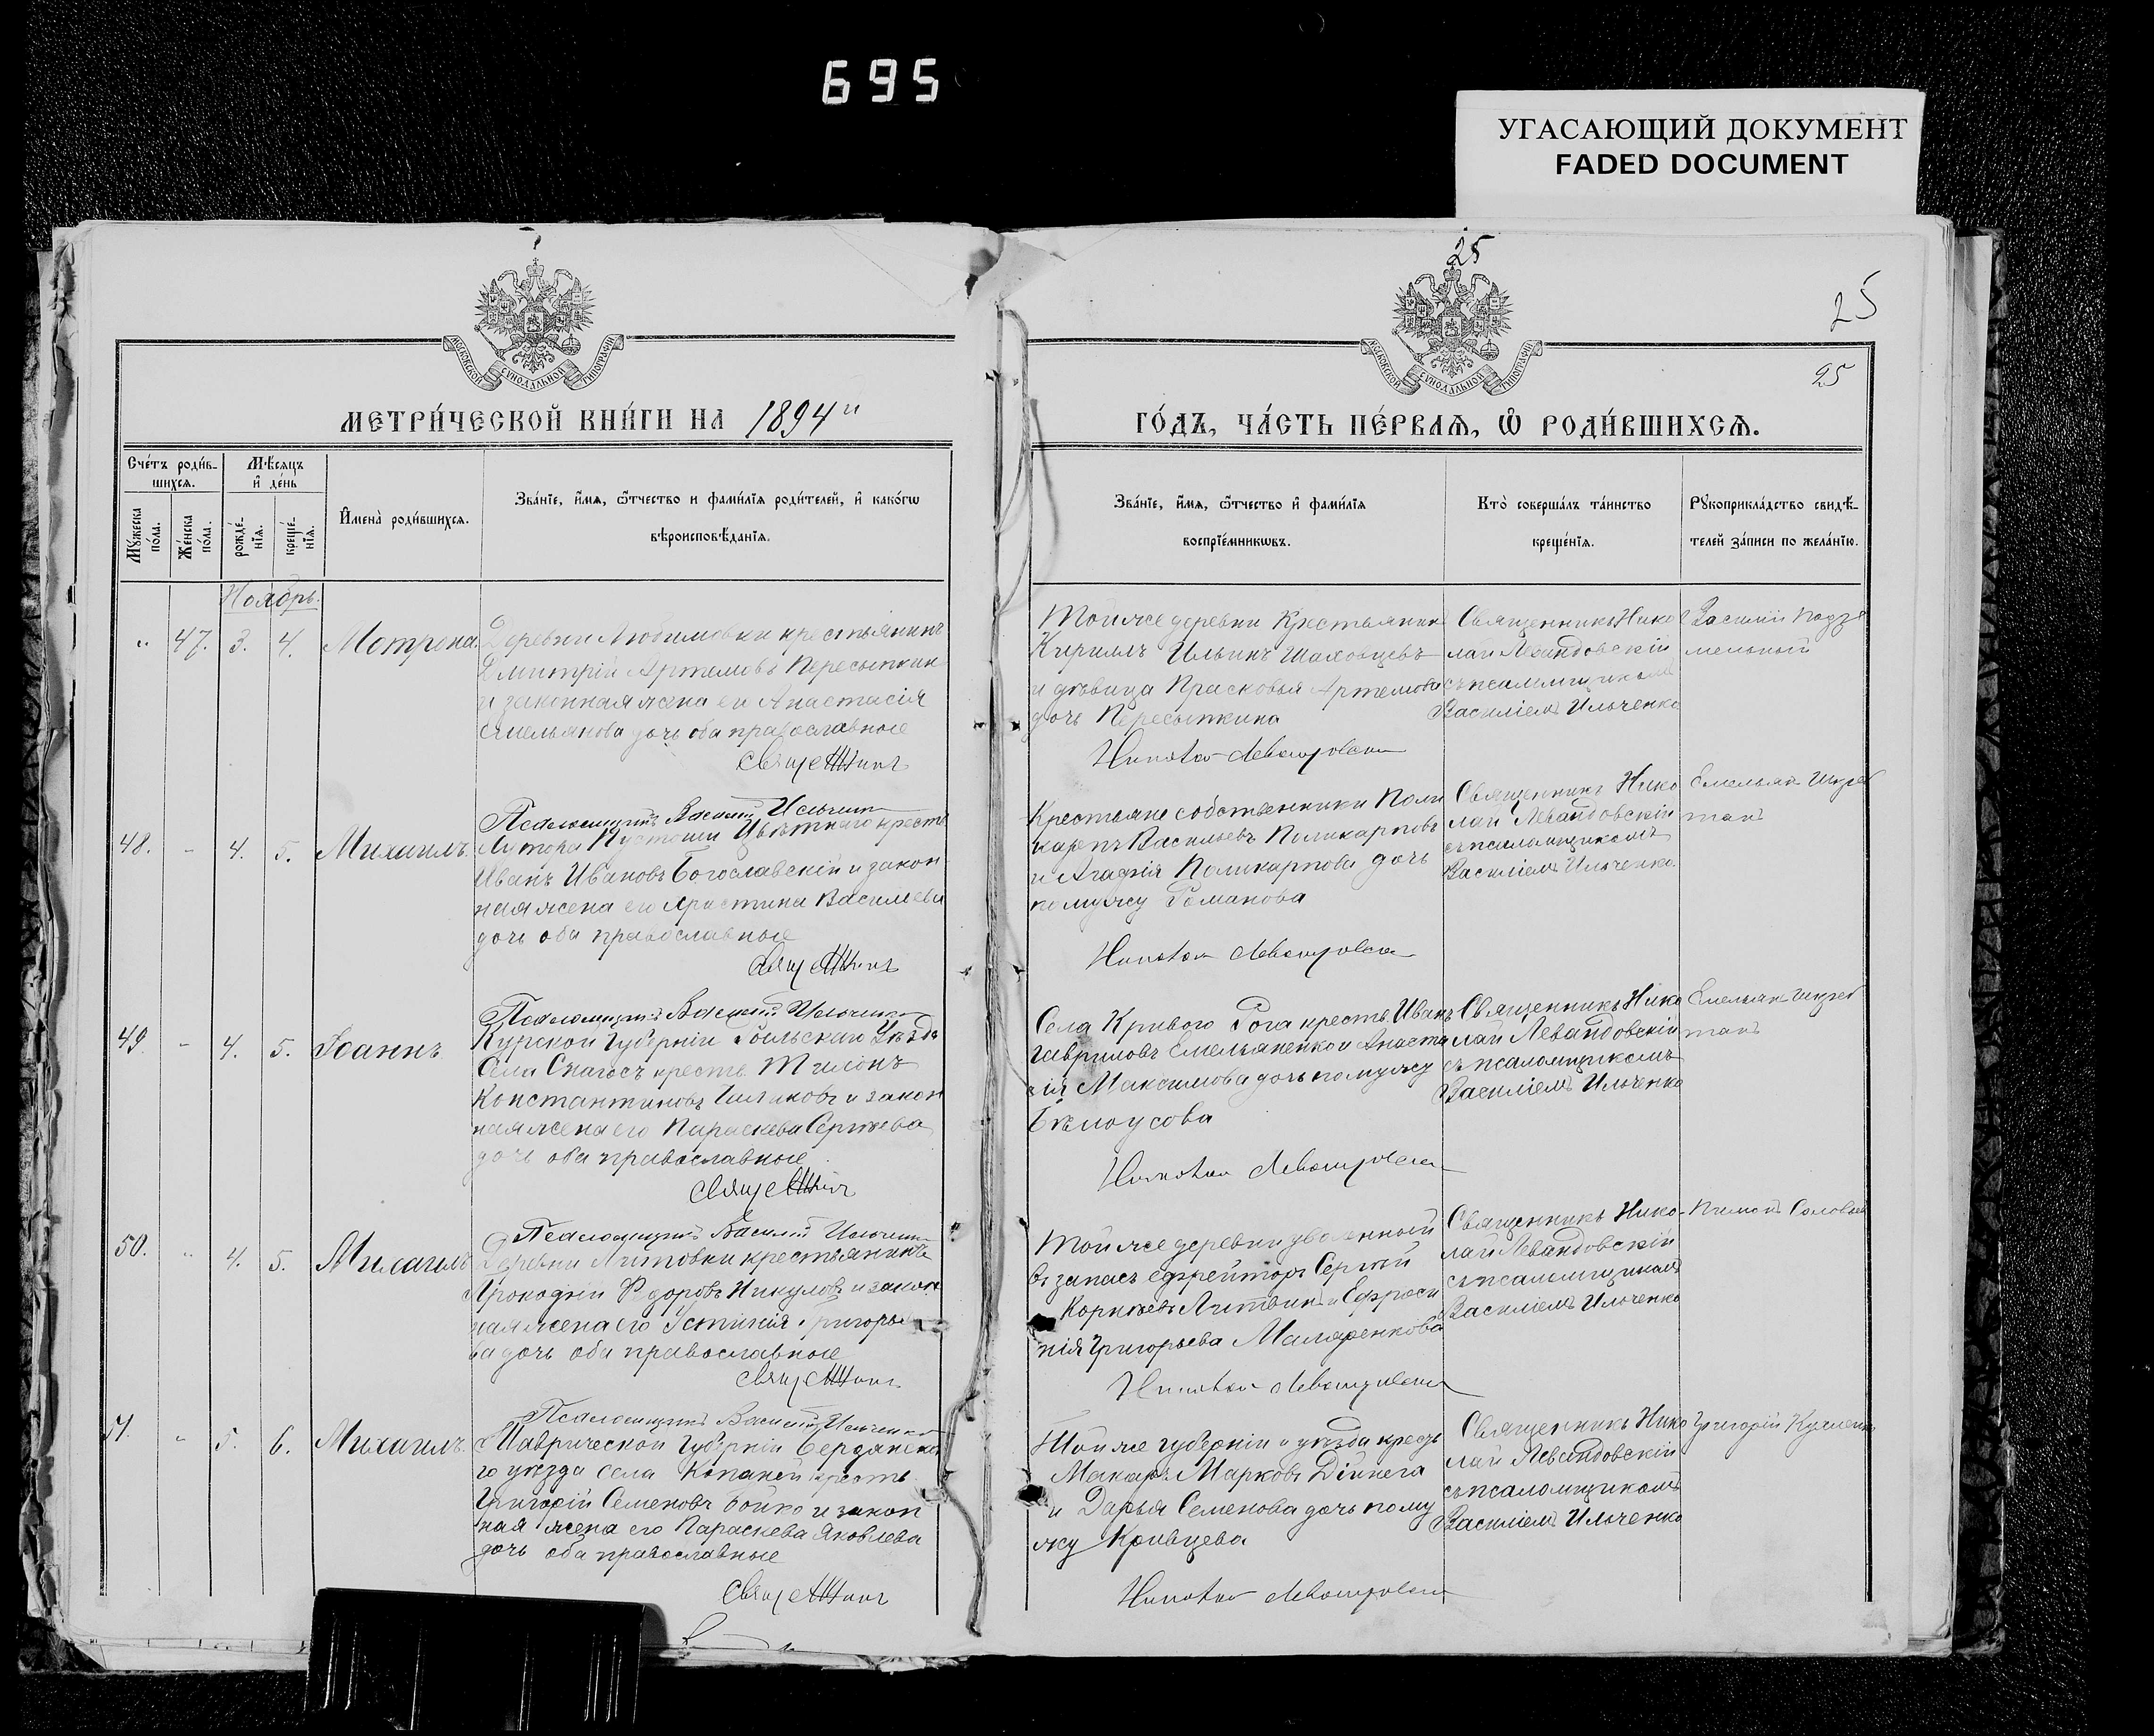 695
УГАСАЮЩИЙ ДОКУМЕНТ
FADED DOCUMENT
25
25
25
МОСКОВСКОЙ СѴНОДАЛЬНОЙ ТИПОГРАФІИ
МОСКОВСКОЙ СѴНОДАЛЬНОЙ ТИПОГРАФІИ
МЕТРИ́ЧЕСКОЙ КНИ́ГИ НА 1894й
ГО́ДЪ, ЧА́СТЬ ПЕ́РВАѦ, Ѡ҆ РОДИ́ВШИХСѦ.
Сче́тъ роди́в-
шихсѧ.
Мѣ́сѧцъ
и҆ де́нь
Мꙋ́жеска
по́ла.
Же́нска
по́ла.
рожде́-
нїѧ.
креще́-
нїѧ.
И҆мена̀ роди́вшихсѧ.
Зва́нїе, и҆́мѧ, ѻ҆́тчество и фами́лїѧ роди́телей, и҆ како́гѡ
вѣроисповѣ́данїѧ.
Зва́нїе, и҆́мѧ, ѻ҆́тчество и҆ фами́лїѧ
воспрїе́мникѡвъ.
Кто̀ соверша́лъ та́инство
креще́нїѧ.
Рꙋкоприкла́дство свидѣ́-
телей за́писи по жела́нїю.
Ноябрь.
" 47. 3. 4. Мотрона.
Деревни Любимовки крестьянинъ
Дмитрій Артемовъ Пересыпкин
и законная жена его Анастасія
Емельянова дочь оба православные
Священникъ
Тойже деревни Крестьянин
Кириллъ Ильинъ Шаховцевъ
и дѣвица Прасковья Артемова
дочь Пересыпкина
Николай Левандовскій
Священникъ Нико
лай Левандовскій
съ псаломщикомъ
Василіемъ Ильченко
Василій Подзе
мельный
Псаломщикъ Василій Ильченко
48. - 4. 5. Михаилъ.
Хутора Пустоши Цвѣтного крест.
Иванъ Ивановъ Богославскій и закон
ная жена его Христина Василева
дочь оба православные
Священникъ
Крестьяне собственники Поли
карпъ Васильевъ Поликарповъ
и Агафія Поликарпова дочь
по мужу Романова
Николай Левандовскій
Священникъ Нико
лай Левандовскій
съ псаломщикомъ
Василіемъ Ильченко.
Емельян
Псаломщикъ Василій Ильченко
49. - 4. 5. Іоаннъ
Курской Губерніи Уѣзда
Села крестъ.
Константиновъ и закон
ная жена его Параскева Сергѣева
дочь оба православные
Священникъ
Села Кривого Рога крестъ. Иванъ
Гавриловъ Емельяненко и Анаста
сія Максимова дочь по мужу
Бѣлоусова
Николай Левандовскій
Священникъ Нико
лай Левандовскій
съ псаломщикомъ
Василіемъ Ильченко
Емельян
Псаломщикъ Василій Ильченко
50. " 4. 5. Михаилъ
Деревни Литовки крестьянинъ
Федоровъ Никуловъ и закон
ная жена его Устинія Григорье
ва дочь оба православные
Священникъ
Тойже деревни уволенный
въ запасъ ефрейторъ Сергѣй
Корнѣевъ Литвин и Ефроси
нія Григорьева Маляренкова
Николай Левандовскій
Священникъ Нико-
лай Левандовскій
съ псаломщикомъ
Василіемъ Ильченко
Соловьев
Псаломщикъ Василій Ильченко
51. " 5. 6. Михаилъ.
Таврической Губерніи Бердянска
го уѣзда села Копаней крестъ.
Григорій Семеновъ Бойко и закон
ная жена его Параскева Яковлева
дочь оба православные
Священникъ
Той же губерніи и уѣзда крест.
Макаръ Марковъ
и Дарья Семенова дочь по му
жу Кривцева
Николай Левандовскій
Священникъ Нико
лай Левандовскій
съ псаломщикомъ
Василіемъ Ильченко
Григорій